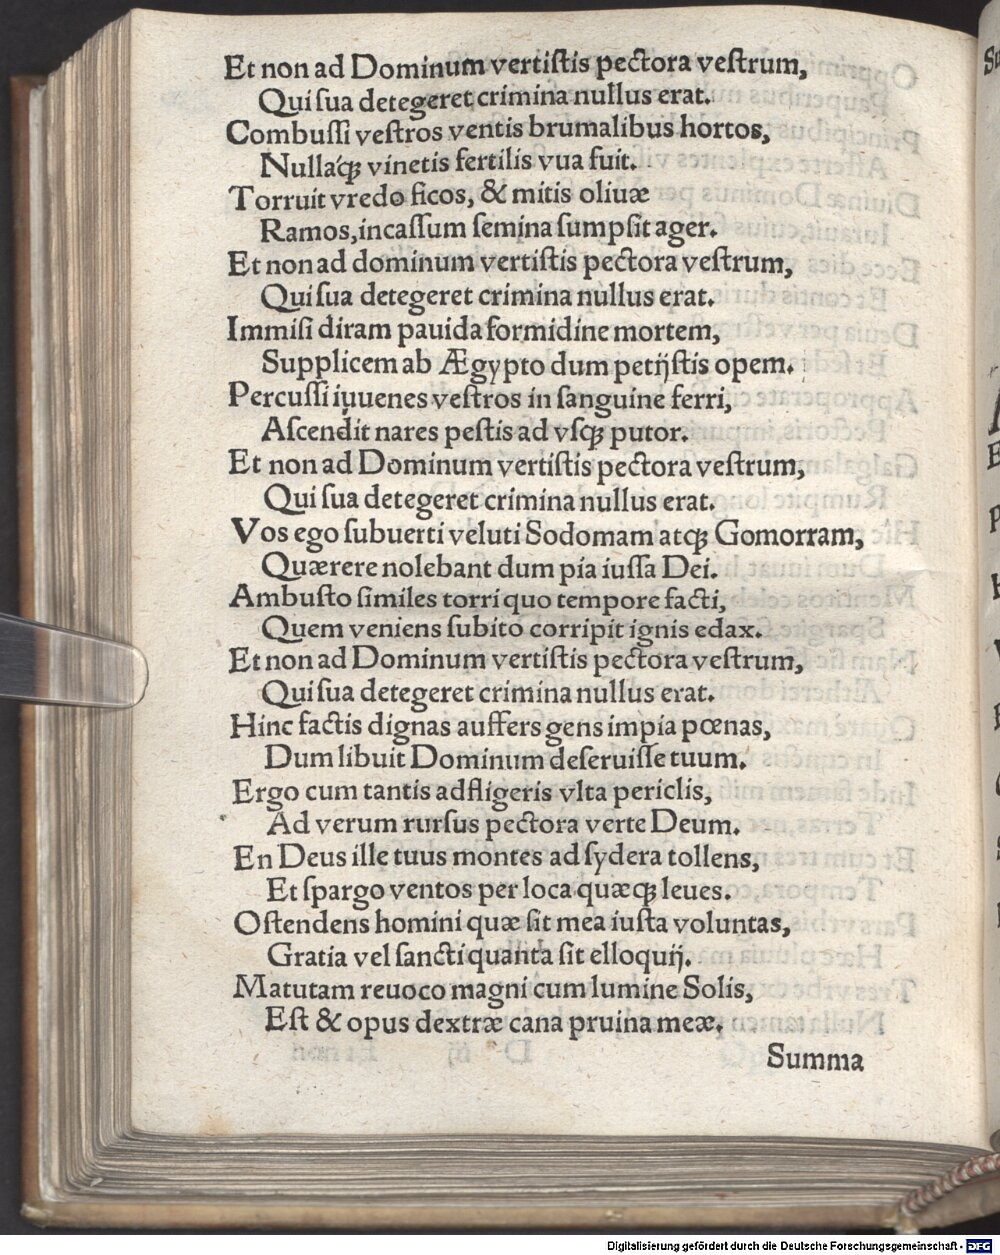 Et non ad Dominum vertiſtis pectora veſtrum,
Qui ſua detegeret crimina nullus erat.
Combuſſi veſtros ventis brumalibus hortos,
Nullaq́ꝫ vinetis fertilis vua fuit.
Torruit vredo ficos, & mitis oliuæ
Ramos, incaſſum ſemina ſumpſit ager.
Et non ad dominum vertiſtis pectora veſtrum,
Qui ſua detegeret crimina nullus erat.
Immiſi diram pauida formidine mortem,
Supplicem ab Ægypto dum petijſtis opem.
Percuſſi iuuenes veſtros in ſanguine ferri,
Aſcendit nares peſtis ad vſqꝫ putor.
Et non ad Dominum vertiſtis pectora veſtrum,
Qui ſua detegeret crimina nullus erat.
Vos ego ſubuerti veluti Sodomam atqꝫ Gomorram,
Quærere nolebant dum pia iuſſa Dei.
Ambuſto ſimiles torri quo tempore facti,
Quem veniens ſubito corripit ignis edax.
Et non ad Dominum vertiſtis pectora veſtrum,
Qui ſua detegeret crimina nullus erat.
Hinc factis dignas auffers gens impia pœnas,
Dum libuit Dominum deſeruiſſe tuum.
Ergo cum tantis adfligeris vlta periclis,
Ad verum rurſus pectora verte Deum.
En Deus ille tuus montes ad ſydera tollens,
Et ſpargo ventos per loca quæqꝫ leues.
Oſtendens homini quæ ſit mea iuſta voluntas,
Gratia vel ſancti quanta ſit elloquij.
Matutam reuoco magni cum lumine Solis,
Eſt & opus dextræ cana pruina meæ.
Summa
Digitalisierung gefördert durch die Deutsche Forschungsgemeinschaft - DFG